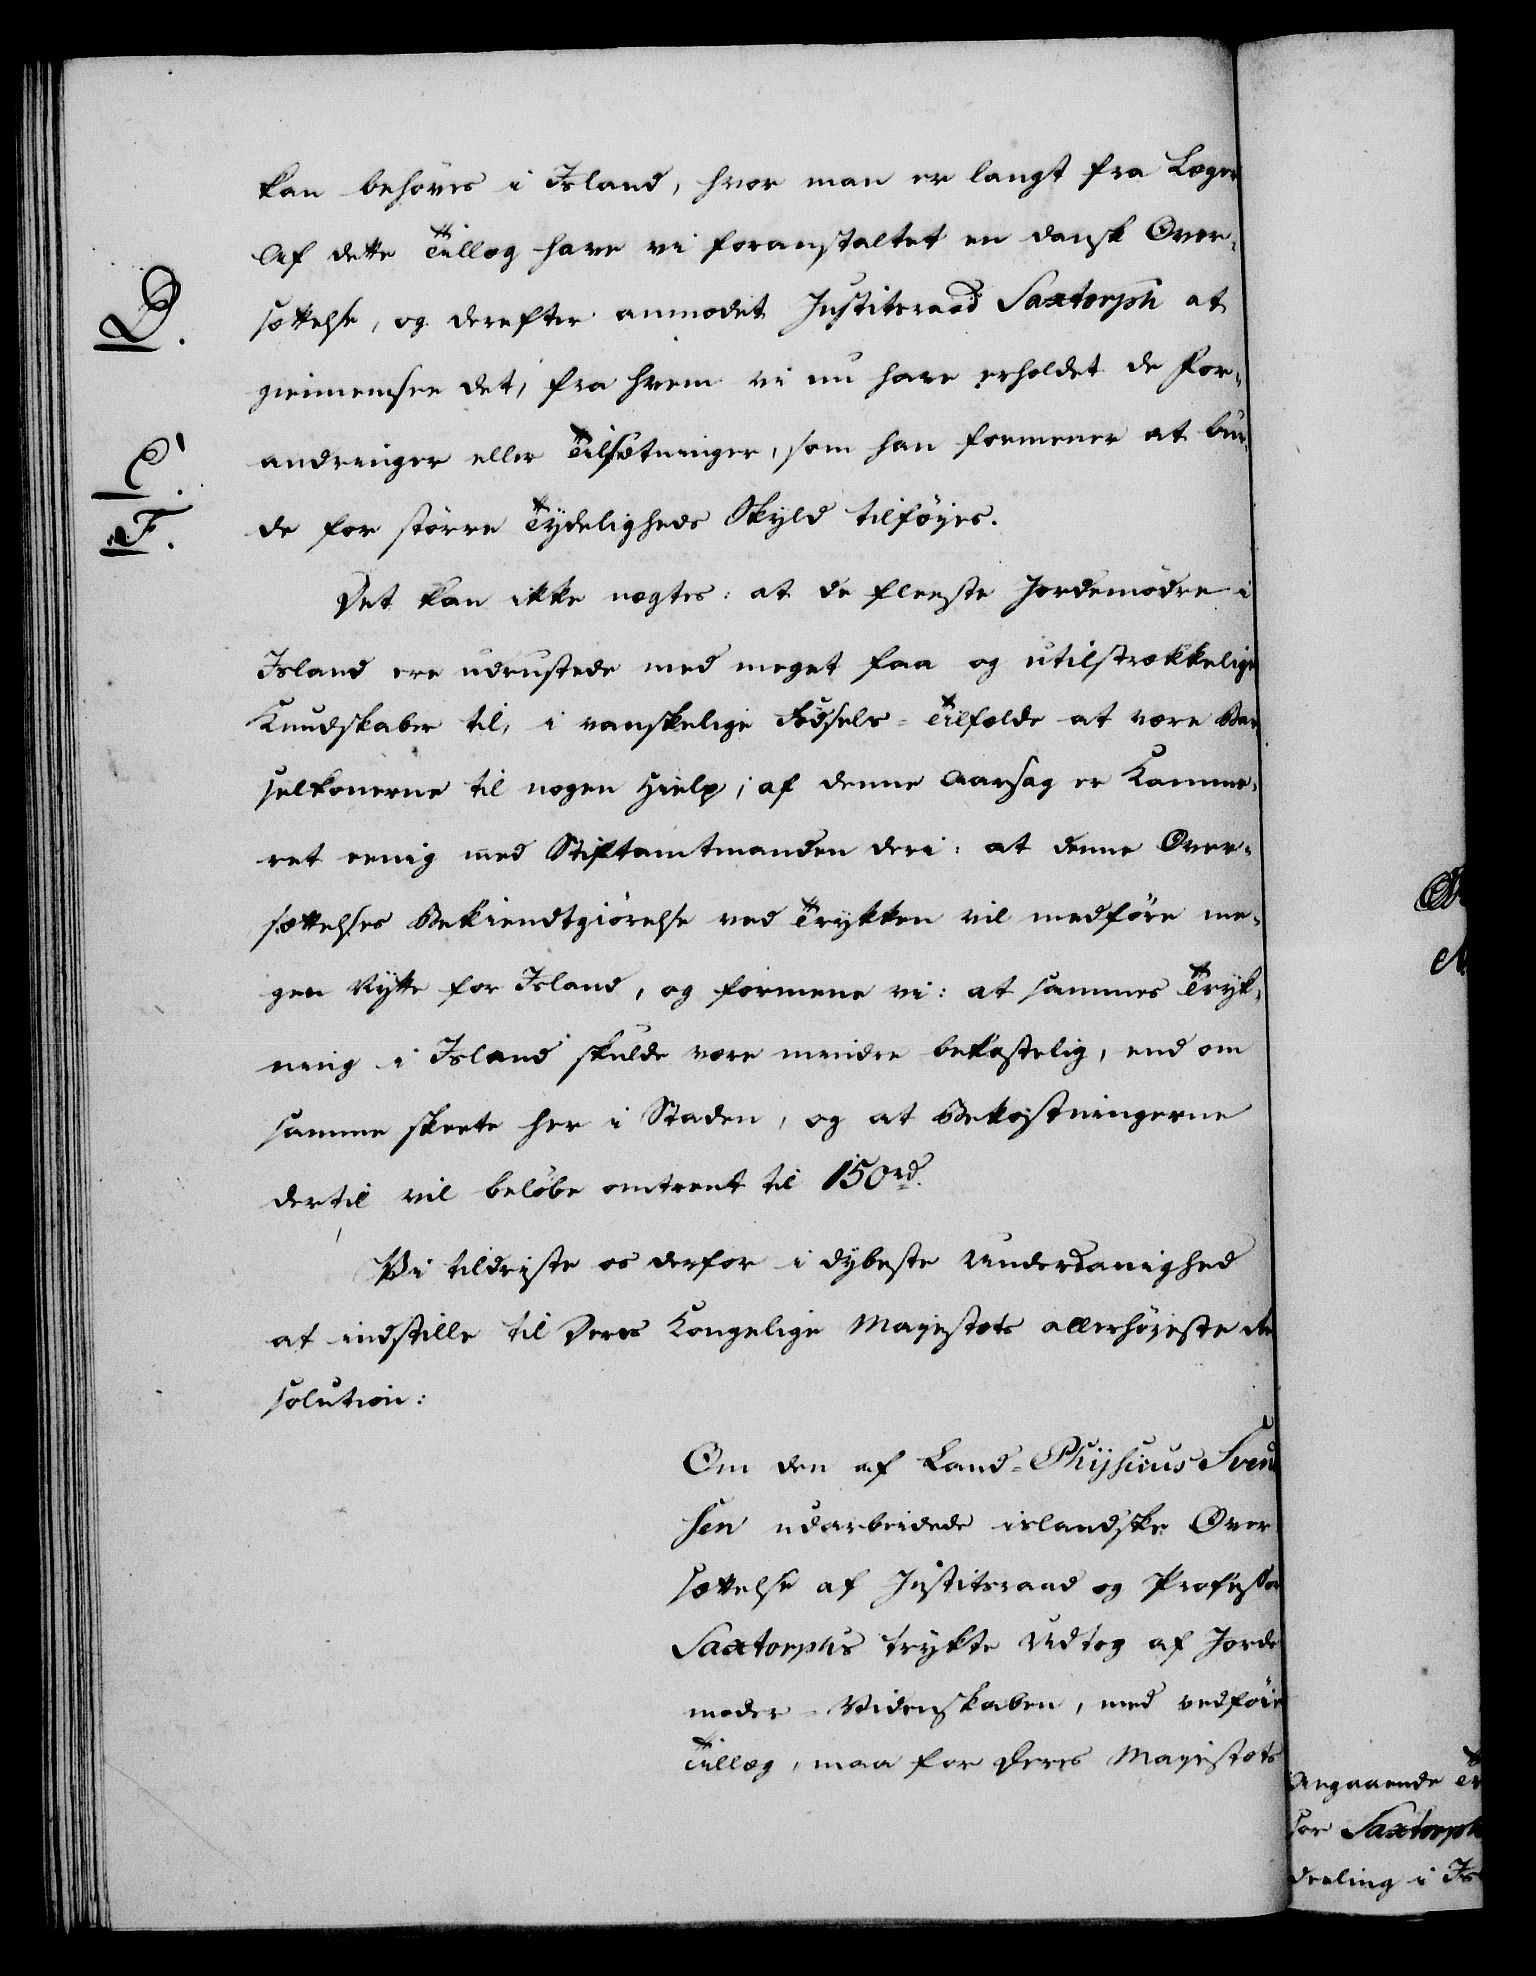 kan behöves i Island, hvor man er langt fra Læger
Af dette Tillæg have vi foranstaltet en dansk Over-
D.
sættelse, og derefter anmodet Justitsraad Saxtorph at
giennemsee det, fra hvem vi nu have erholdet de For-
E.
andringer eller Tilsætninger, som han formener at bur-
F.
de for større Tydeligheds Skyld tilföjes.
Det kan ikke nægtes: at de fleeste Jordemødre i
Island ere udrustede med meget faa og utilstrækkelige
Kundskaber til, i vanskelige Födsels-Tilfælde at være Bar
selkonerne til nogen Hielp; af denne Aarsag er Kamme-
ret eenig med Stiftamtmanden deri: at denne Over-
sættelses Bekiendtgiörelse ved Trykken vil medföre me-
gen Nytte for Island, og formene vi: at sammes Tryk-
ning i Island skulde være mindre bekostelig, end om
samme skeete her i Staden, og at Bekostningerne
dertil vil belöbe omtrent til 150 rd.
Vi tildriste os derfor i dybeste Underdanighed
at indstille til Deres Kongelige Majestæts allerhöjeste Re
solution:
Om den af Land-Physicus Svend
sen udarbeidede islandske Over
sættelse af Justitsraad og Professor
Saxtorphs trykte Udtog af Jorde
moder-Videnskaben, med vedföie
Tillæg, maa for Deres Majestæts
Angaaende Tr
sor Saxtorph
deeling i Is